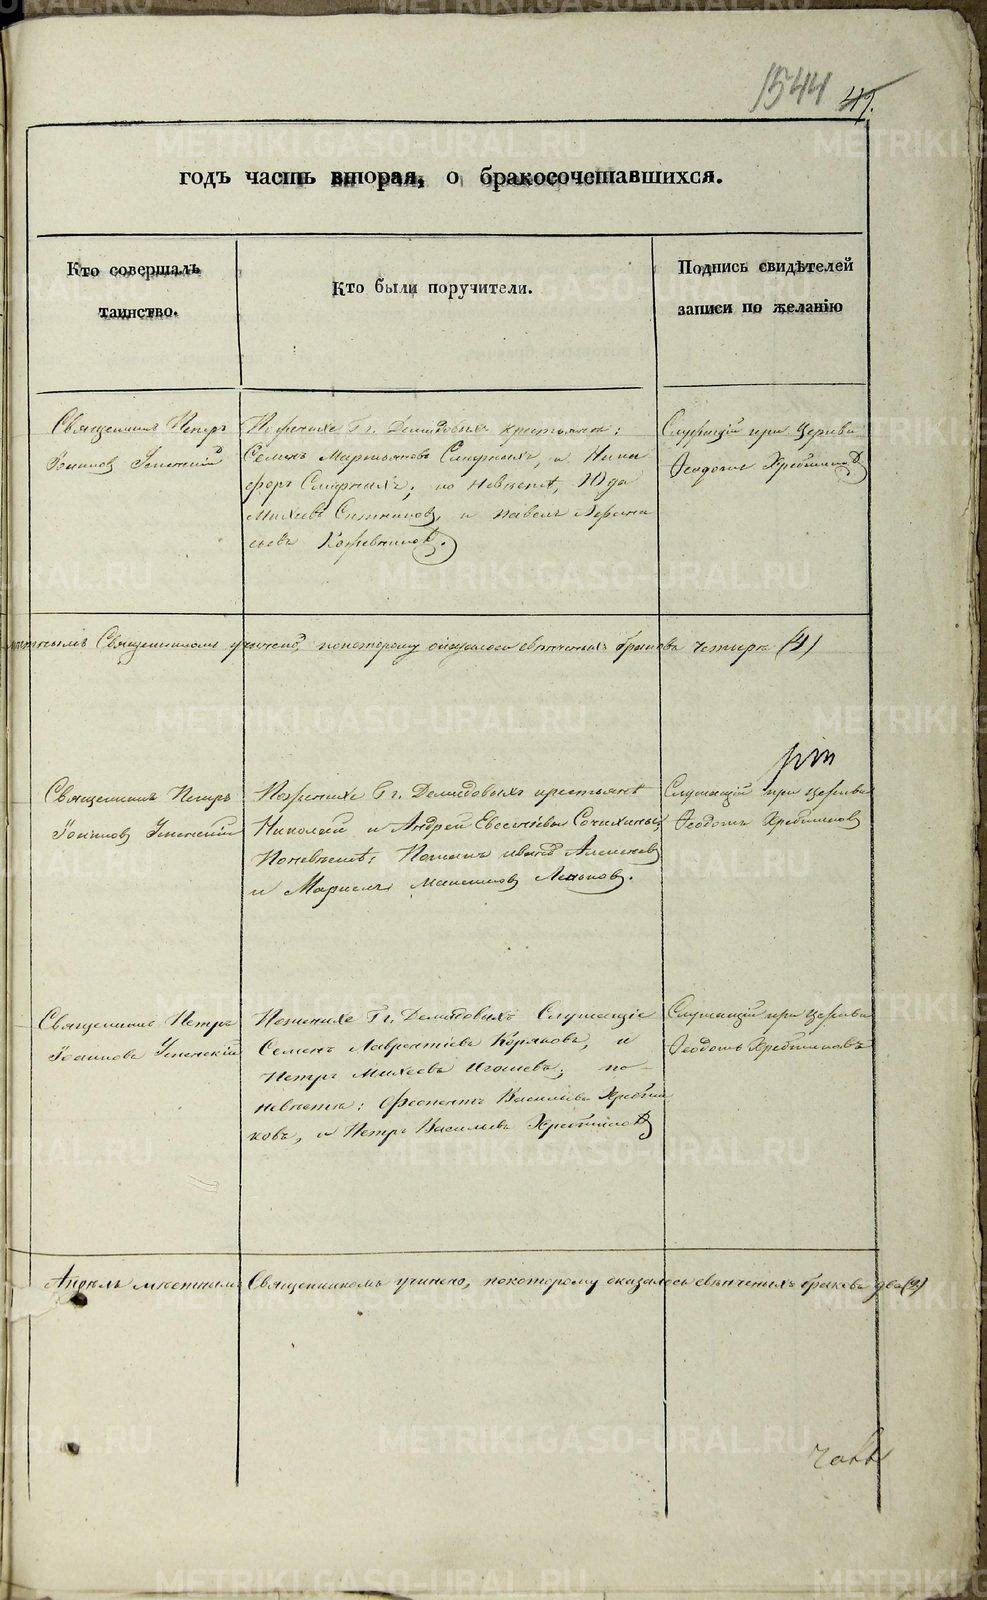 1544
47.
годъ часть вторая, о бракосочетавшихся.
Кто совершалъ
таинство.
Кто были поручители.
Подпись свидѣтелей
записи по желанію
Священникъ Петръ
Іоанновъ Успенскій
По женихе Гг. Демидовыхъ крестьяне:
Семенъ Мартьяновъ Смирныхъ, и Ники
форъ Смирныхъ; по невѣсте, Юда
Михеевъ Ситниковъ, и Павелъ Афана
сьевъ Кожевниковъ.
Служащій при Церкви
Ѳеодотъ Хребтиковъ
мѣстнымъ Священникомъ учинено, покоторому оказалось свѣнчаныхъ браковъ четыре (4)
Священникъ Петръ
Іоанновъ Успенскій
Поженихе Гг. Демидовыхъ крестьяне
Николай и Андрей
Поневѣсте:
и Максимовъ
Служащій при Церкви
Ѳеодотъ Хребтиковъ
Священникъ Петръ
Іоанновъ Успенскій
Поженихе Гг. Демидовыхъ Служащіе
Семенъ Лаврентіевъ Коряковъ, и
Петръ Михеевъ Игошевъ; по
невѣсте: Феоктистъ Васильевъ Хребти
ковъ, и Петръ Васильевъ Хребтиковъ
Служащій при Церкви
Ѳеодотъ Хребтиковъ
Апрѣль мѣстнымъ Священникомъ учинено, покоторому оказалось свѣнчаныхъ браковъ два (2)
METRIKI.GASO-URAL.RU